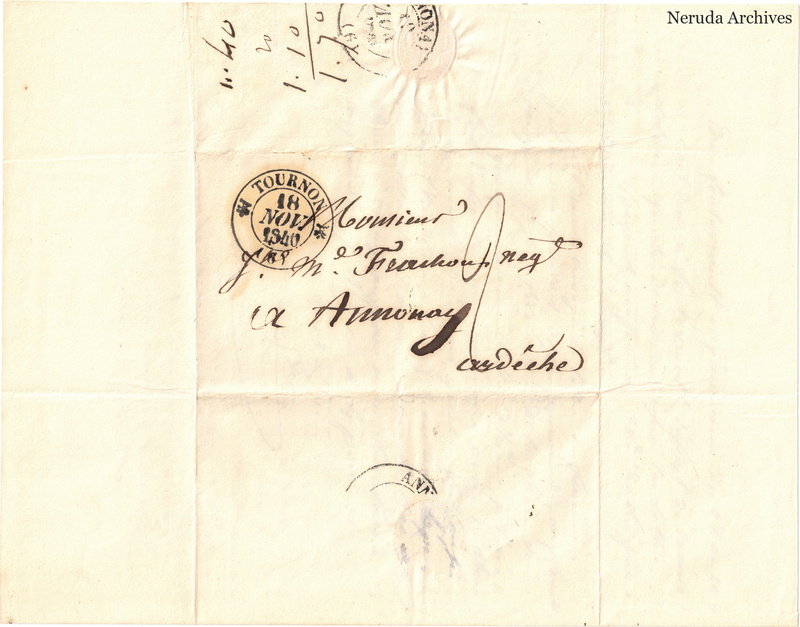 Neruda Archives
11.40
20
1.10
1.70
ONAY
NOV
(6)
TOURNON
18
NOV.
1840
(6)
Monsieur
J. Md. Frachon neqt
a Annonay
ardèche
ANN